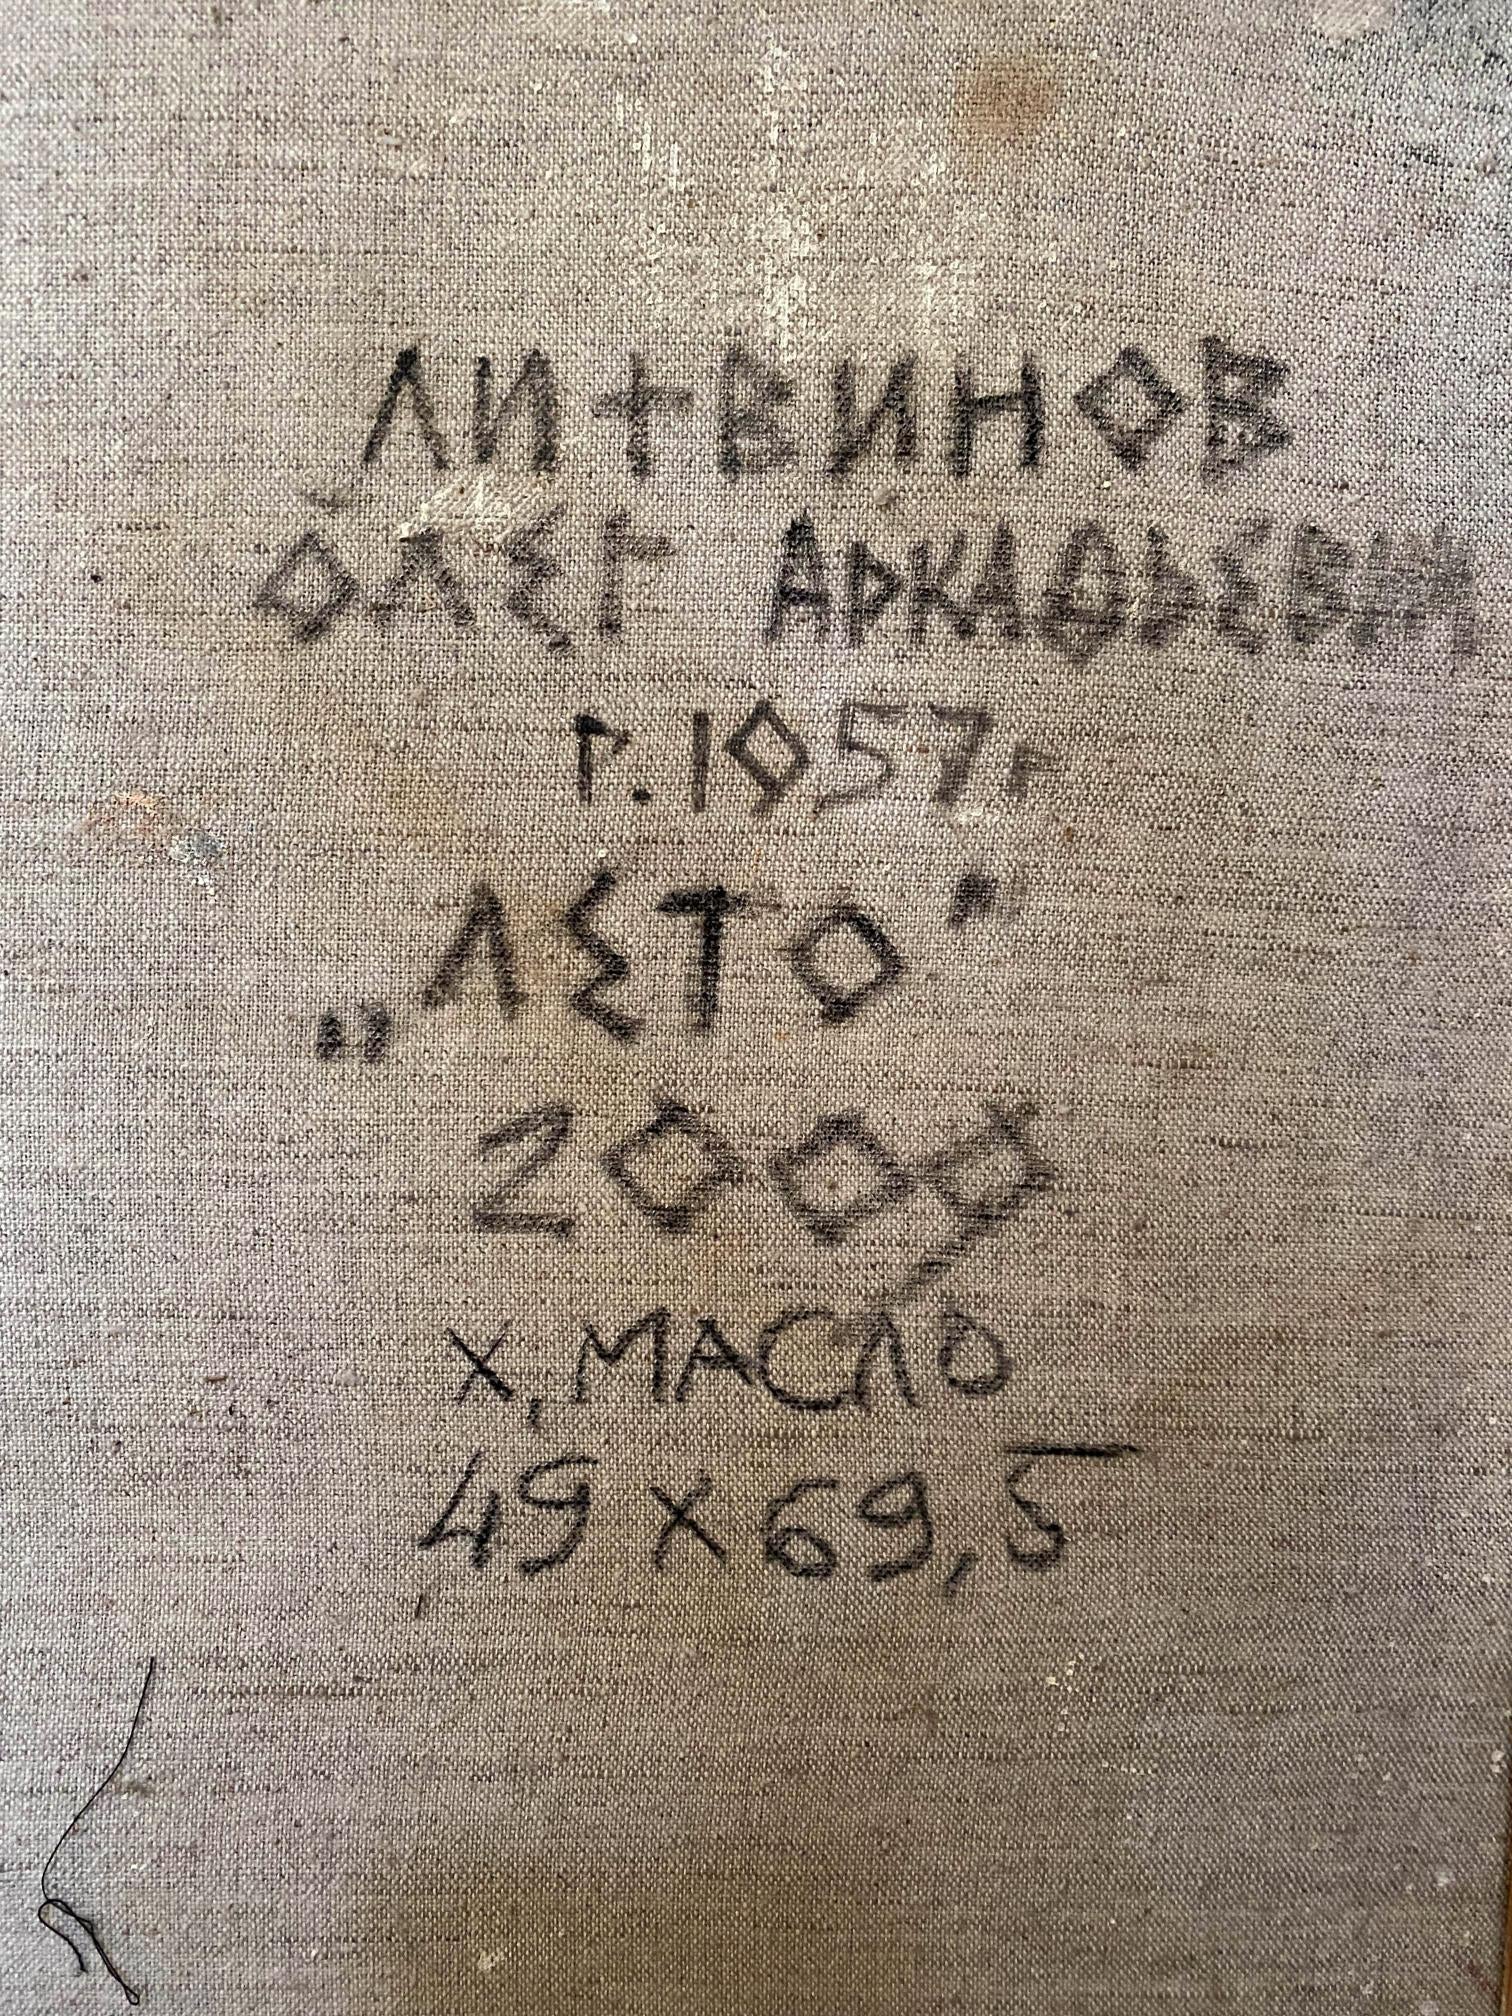 ЛИТВИНОВ
ОЛЕГ АРКАДЬЕВИЧ
г. 1957 г
„ЛЕТО"
2009
х, МАСЛО
49 х 69,5